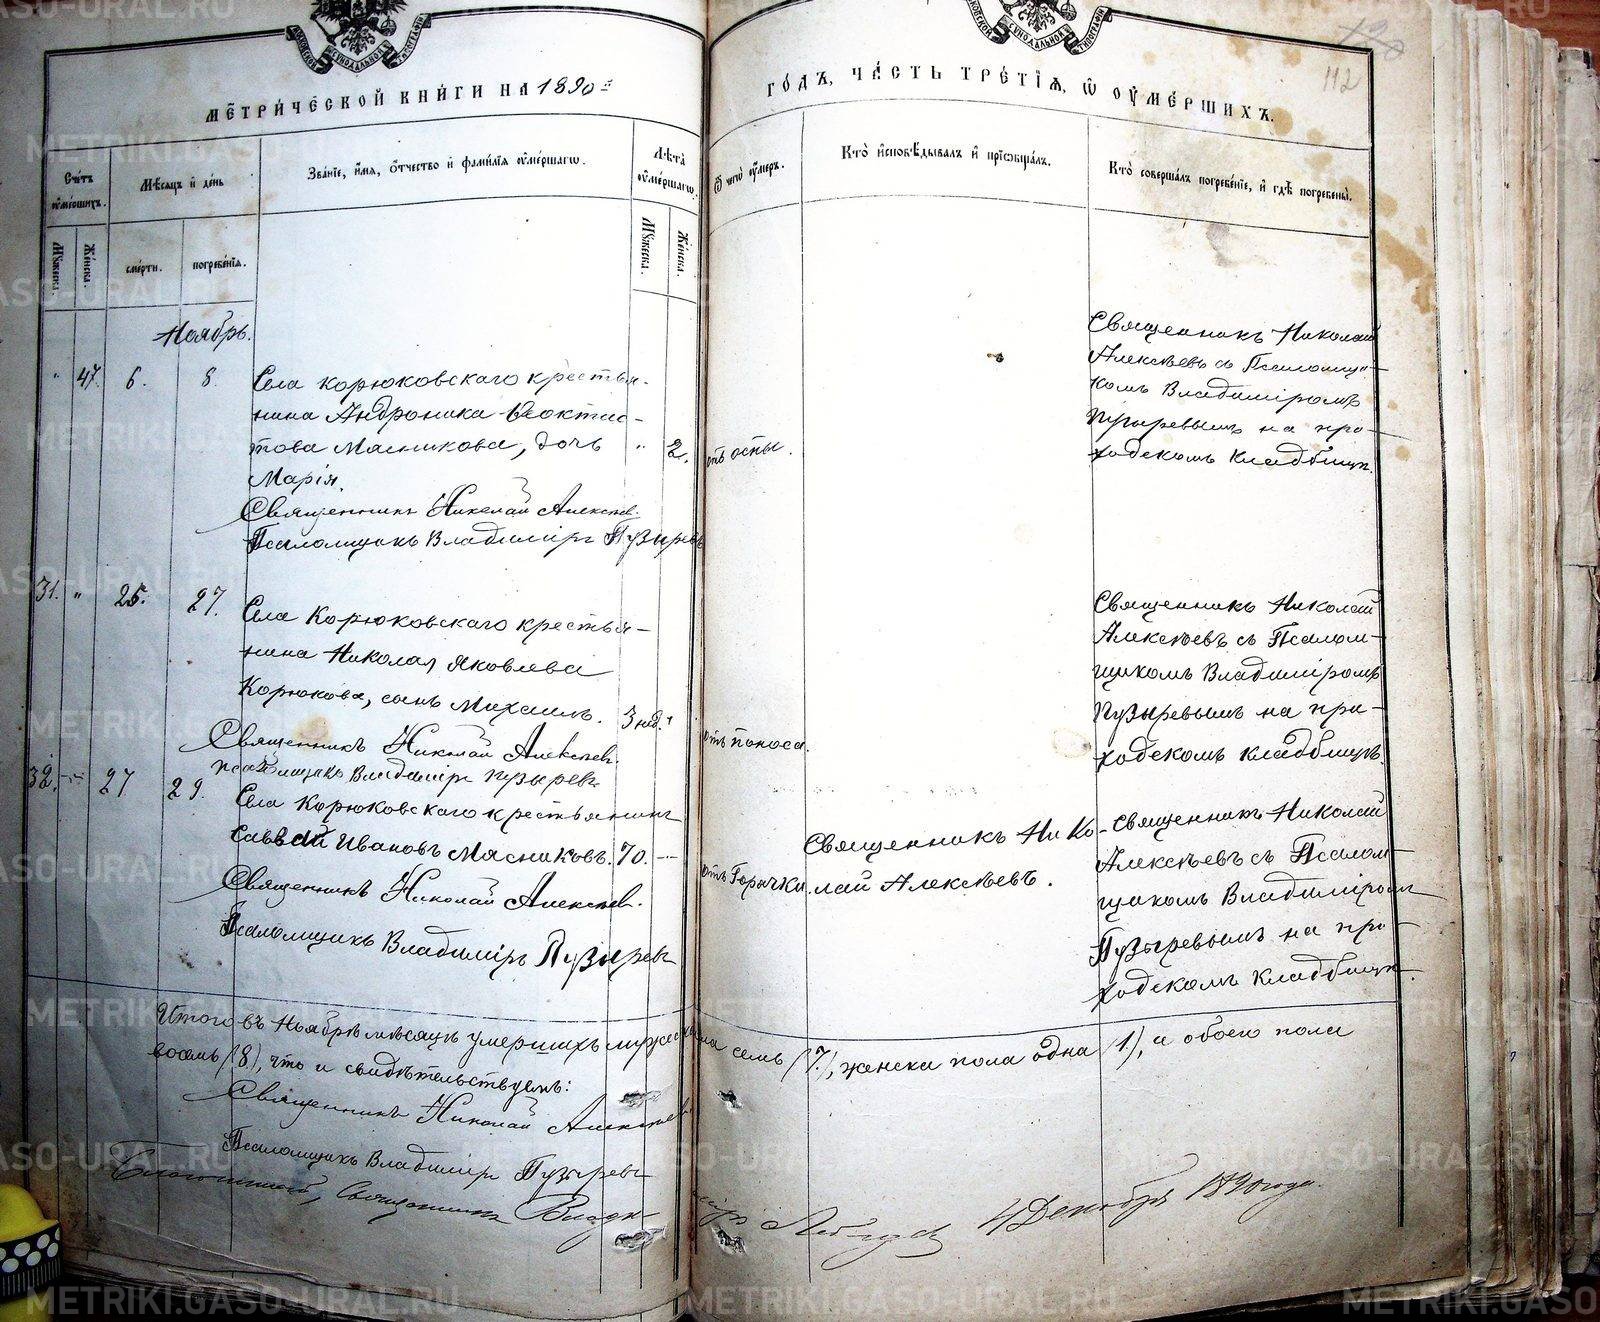 МЕТРИЧЕСКОЙ КНИГИ НА 1890 й
ГОДЪ, ЧАСТЬ ТРЕТІЯ, Ѡ ОУМЕРШИХЪ.
112
Счетъ оумершихъ.
Мѣсяцъ и день
Званіе, имя, отчество и фамилія оумершагѡ.
Лѣта оумершагѡ.
Ѿ чегѡ оумеръ.
Кто исповѣдывалъ и пріѡбщалъ.
Кто совершалъ погребеніе, и гдѣ погребены.
Мужеска.
Женска.
смерти.
погребенія.
Мужеска.
Женска.
Ноябрь.
" 47. 6. 8. Села Корюковскаго крестья-
нина Андроника Ѳеоктис-
това Мясникова, дочь " 2. отъ оспы.
Марія.
Священникъ Николай Алексѣев.
Псаломщикъ Владиміръ Пузыревъ
Священникъ Николай
Алексѣевъ съ Псаломщи-
комъ Владиміромъ
Пузыревымъ на при-
ходскомъ кладбищѣ.
31. " 25. 27. Села Корюковскаго крестья-
нина Николая Яковлева
Корюкова, сынъ Михаилъ. 3 нед. " отъ поноса.
Священникъ Николай Алексѣев.
Псаломщикъ Владиміръ Пузыревъ
Священникъ Николай
Алексѣевъ съ Псалом-
щикомъ Владиміромъ
Пузыревымъ на при-
ходскомъ кладбищѣ.
32. 27 29. Села Корюковскаго крестьянинъ
Саввай Ивановъ Мясниковъ. 70. отъ Горячки.
Священникъ Николай Алексѣев.
Псаломщикъ Владиміръ Пузыревъ
Священникъ Нико-
лай Алексѣевъ.
Священникъ Николай
Алексѣевъ съ Псалом-
щикомъ Владиміромъ
Пузыревымъ на при-
ходскомъ кладбищѣ.
Итого въ Ноябрѣ мѣсяцѣ умершихъ мужеска пола семь (7), женска пола одна (1), а обоего пола
восемь (8), что и свидѣтельствуемъ:
Священникъ Николай Алексѣев
Псаломщикъ Владиміръ Пузыревъ
Священникъ 4 Декабря 1890 года.
METRIKI.GASO-URAL.RU